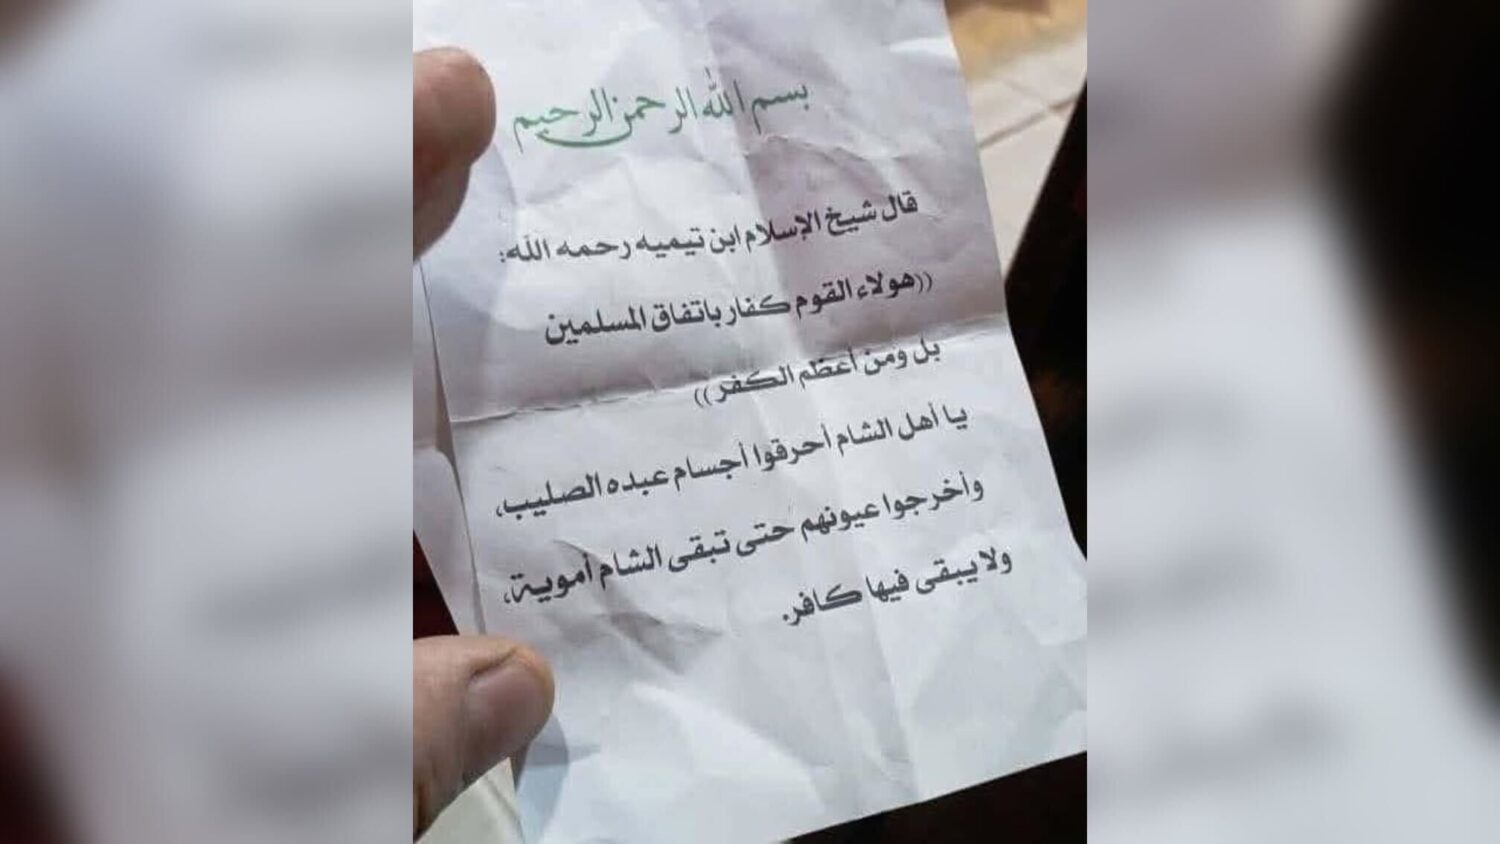 بسم الله الرحمن الرحيم
قال شيخ الإسلام ابن تيميه رحمه الله:
((هولاء القوم كفار باتفاق المسلمين
بل ومن أعظم الكفر))
يا أهل الشام أحرقوا أجسام عبده الصليب،
وأخرجوا عيونهم حتى تبقى الشام أموية،
ولا يبقى فيها كافر.